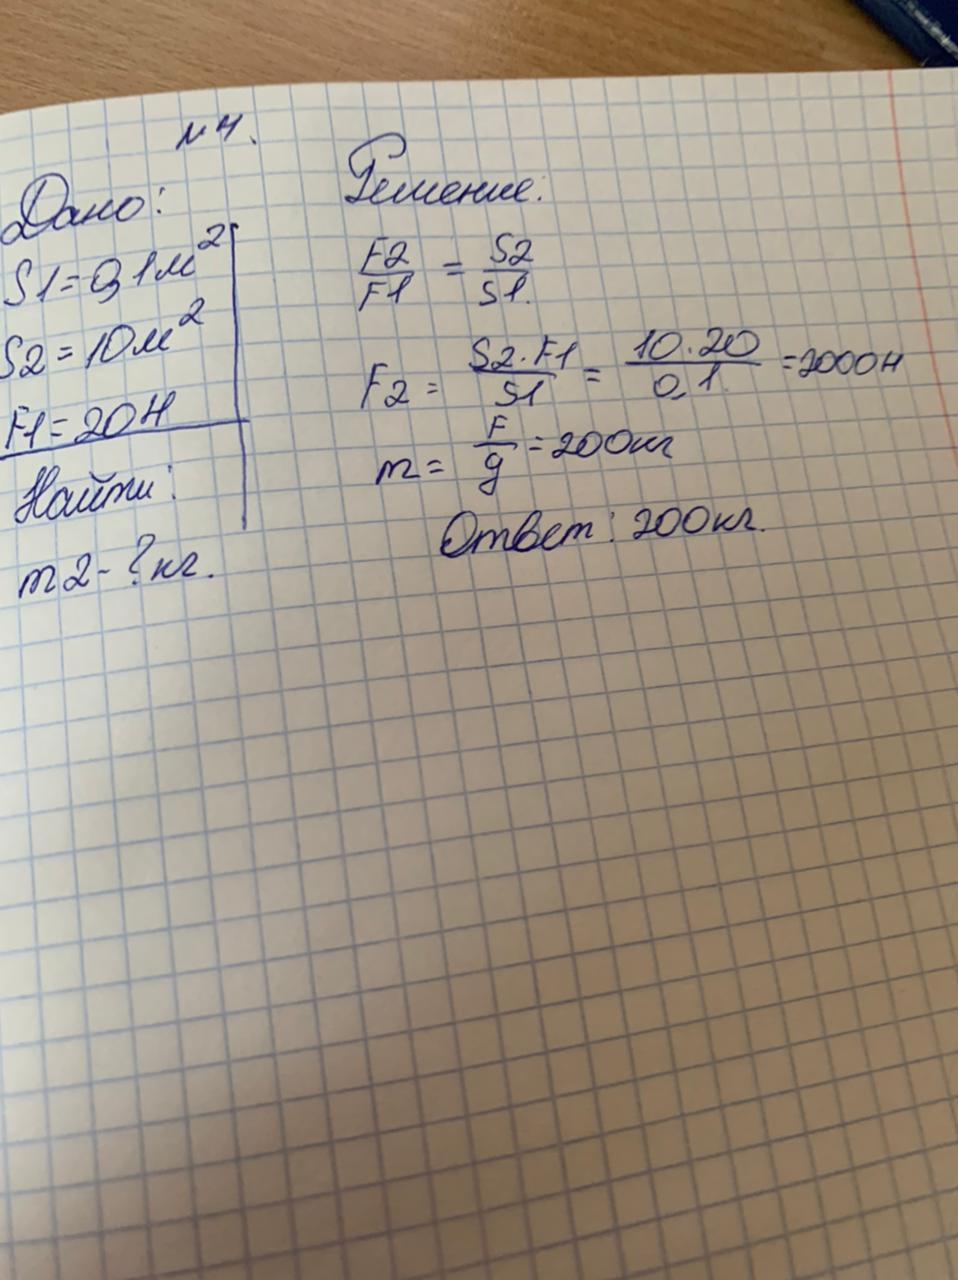 №4.
Дано:
S1=0,1м²
S2=10м²
F1=20Н
Найти:
m2-?кг.
Решение:
F2/F1 = S2/S1.
F2 = S2·F1/S1 = 10·20/0,1 =2000Н
m = F/g =200кг
Ответ: 200кг.